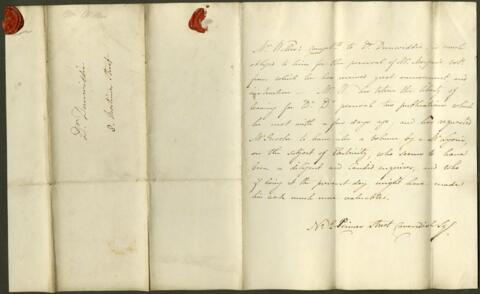 Mr Wilkes
Dr. Dinwiddie
Mortimer Street
Mr. Wilkes's Complts to Dr. Dinwiddie, is much
obliged to him for the perusal of Mr. Morgan's work
from which he has received great amusement and
information — Mr. W has taken the liberty of
leaving for Dr. D's perusal two publications which
he met with a few days ago, and has requested
Mr. to leave also a volume by a Mr. Lyons,
on the subject of Electricity, who seems to have
been a diligent and candid enquirer, and who
if living at the present day might have made
his work much more valuable.
No. 2 Princes Street Cavendish Sqr